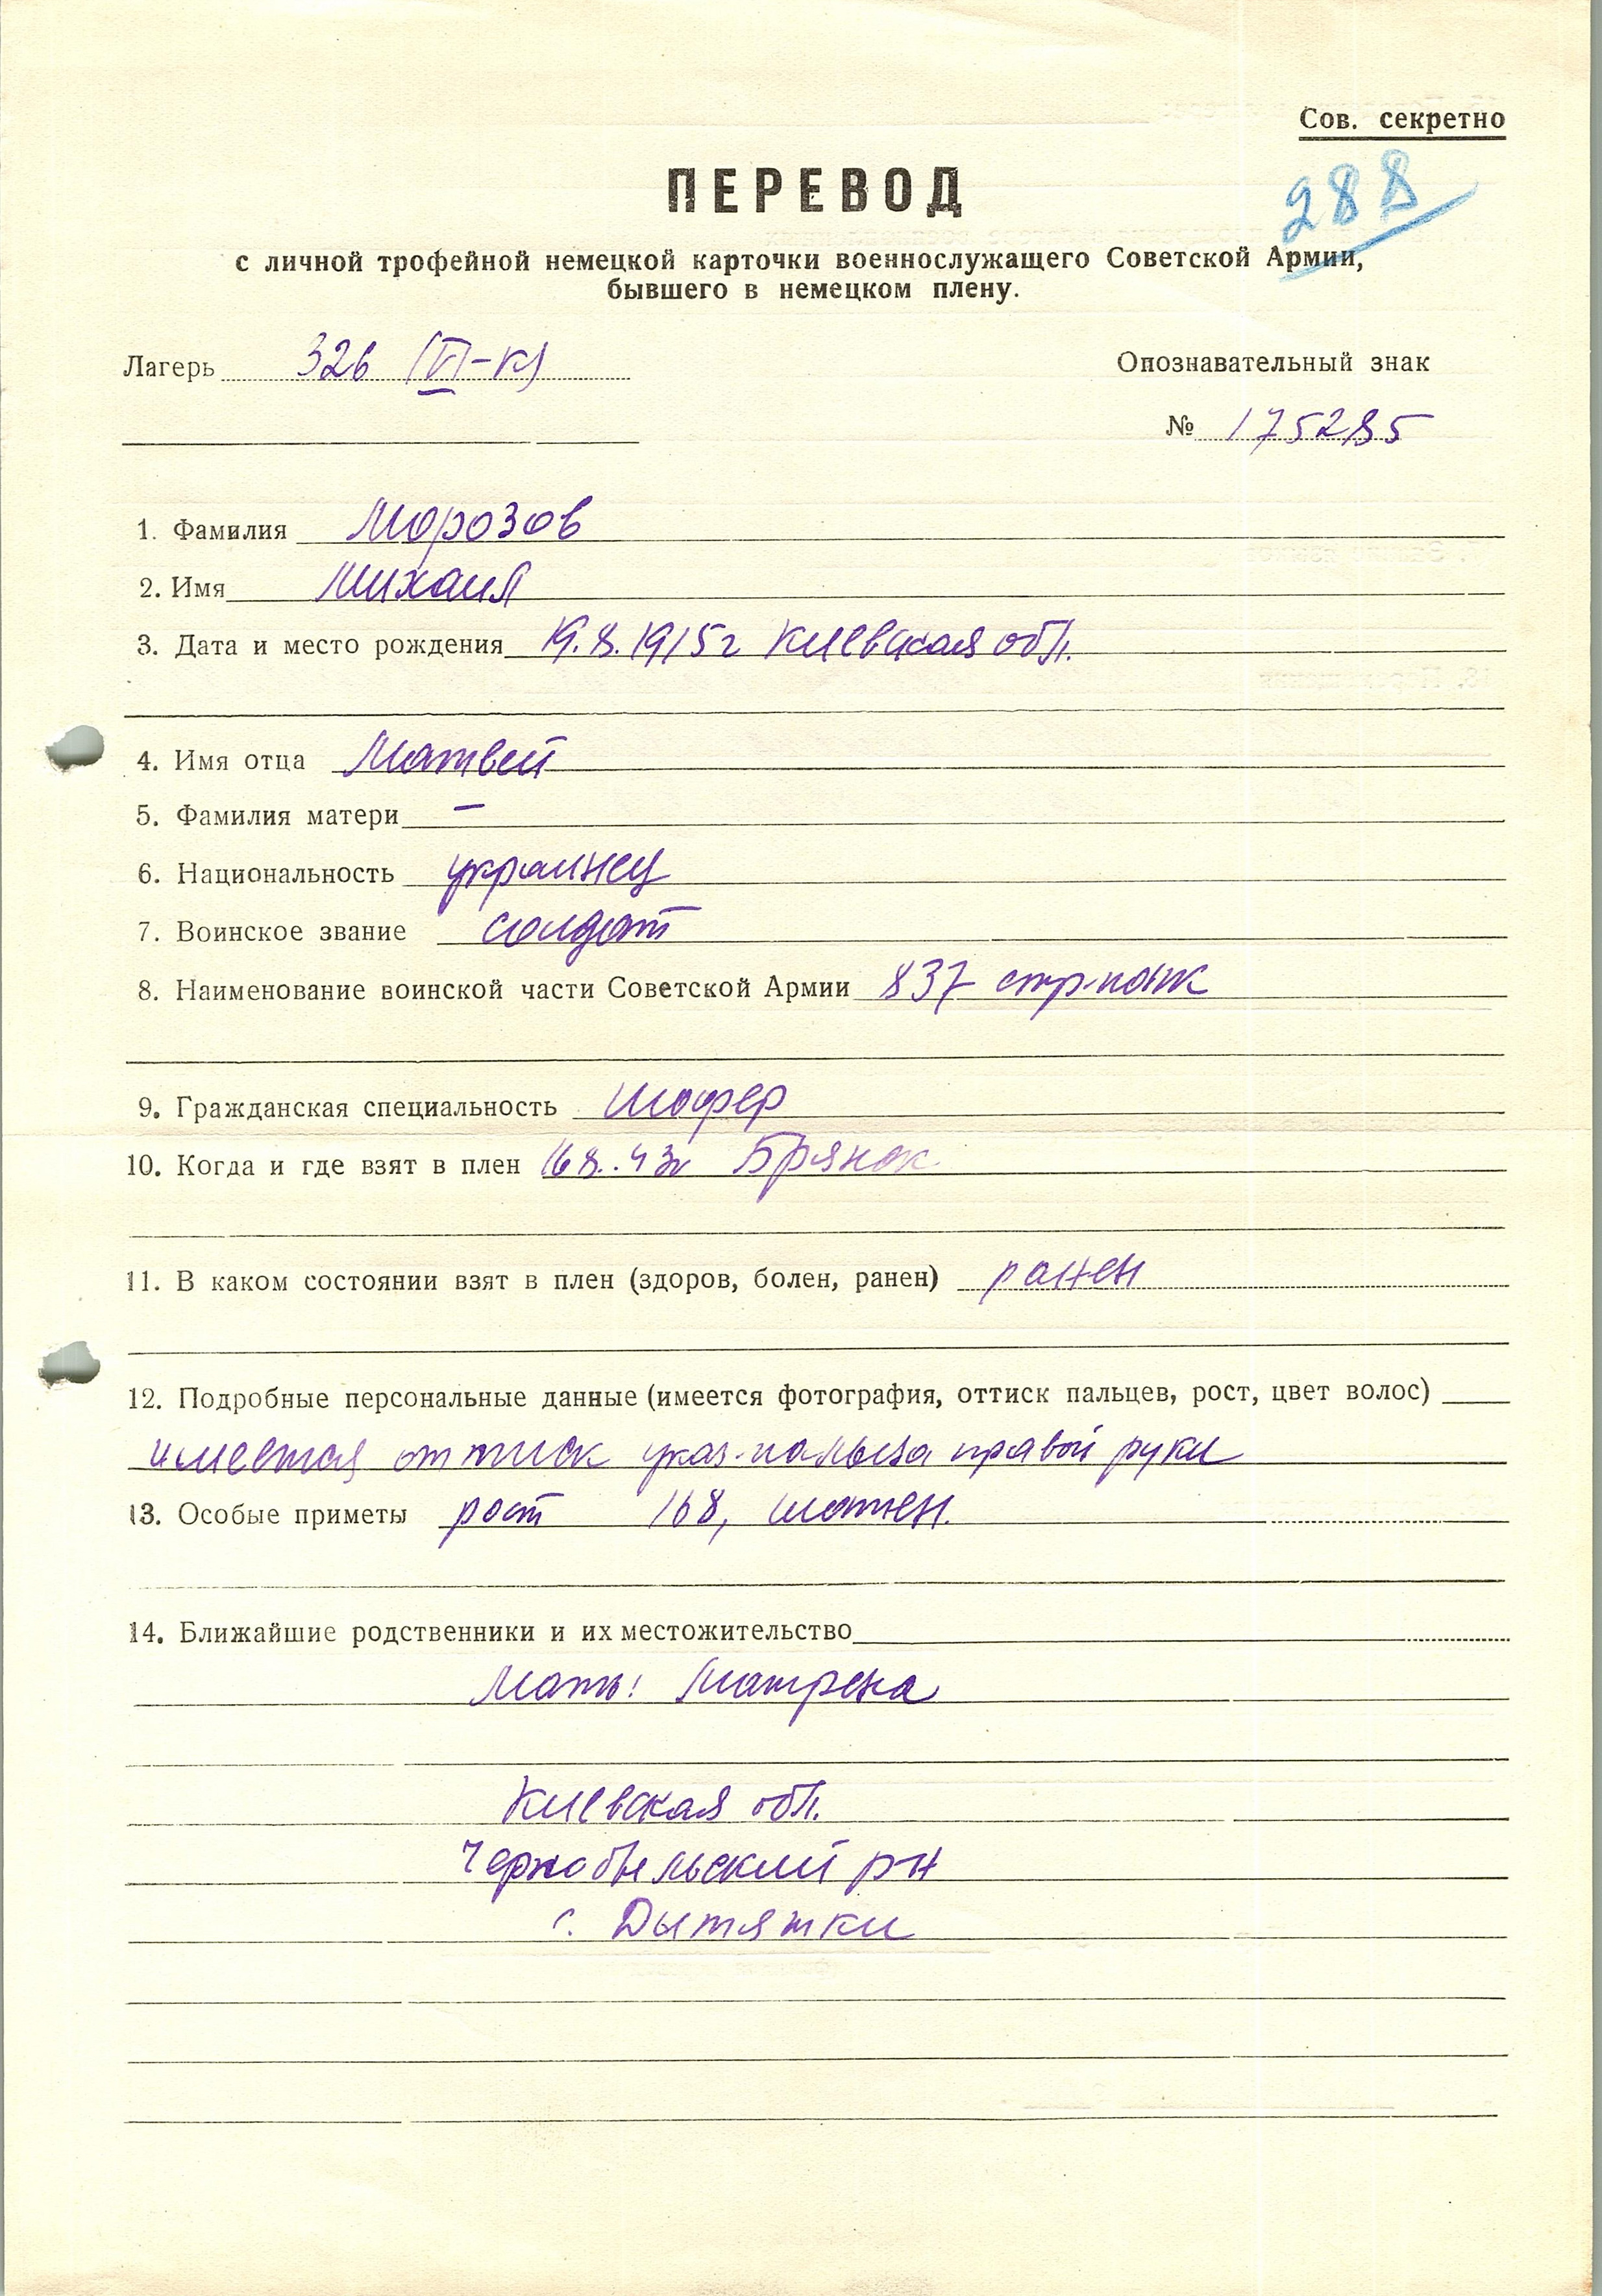 Сов. секретно
288
ПЕРЕВОД
с личной трофейной немецкой карточки военнослужащего Советской Армии,
бывшего в немецком плену.
Лагерь 326 (VI-К) Опознавательный знак
№ 175285
1. Фамилия Морозов
2. Имя Михаил
3. Дата и место рождения 19.8.1915г Киевская обл.
4. Имя отца Матвей
5. Фамилия матери —
6. Национальность украинец
7. Воинское звание солдат
8. Наименование воинской части Советской Армии 837 стр-полк
9. Гражданская специальность шофер
10. Когда и где взят в плен 16 8..43г Брянск
11. В каком состоянии взят в плен (здоров, болен, ранен) ранен
12. Подробные персональные данные (имеется фотография, оттиск пальцев, рост, цвет волос)
имеется оттиск указ-пальца правой руки
13. Особые приметы рост 168, шатен.
14. Ближайшие родственники и их местожительство
Мать: Матрена
Киевская обл.
Чернобыльский рн
с. Дытятки